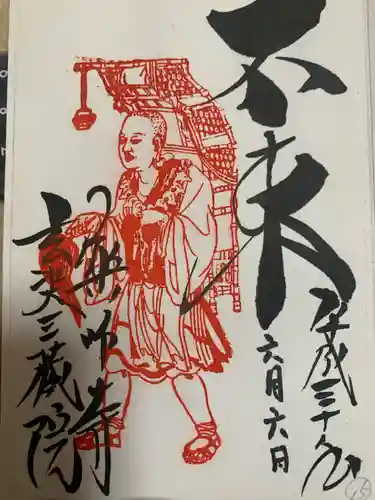 平成三十年
六月六日
不東
薬師寺
玄奘三蔵院